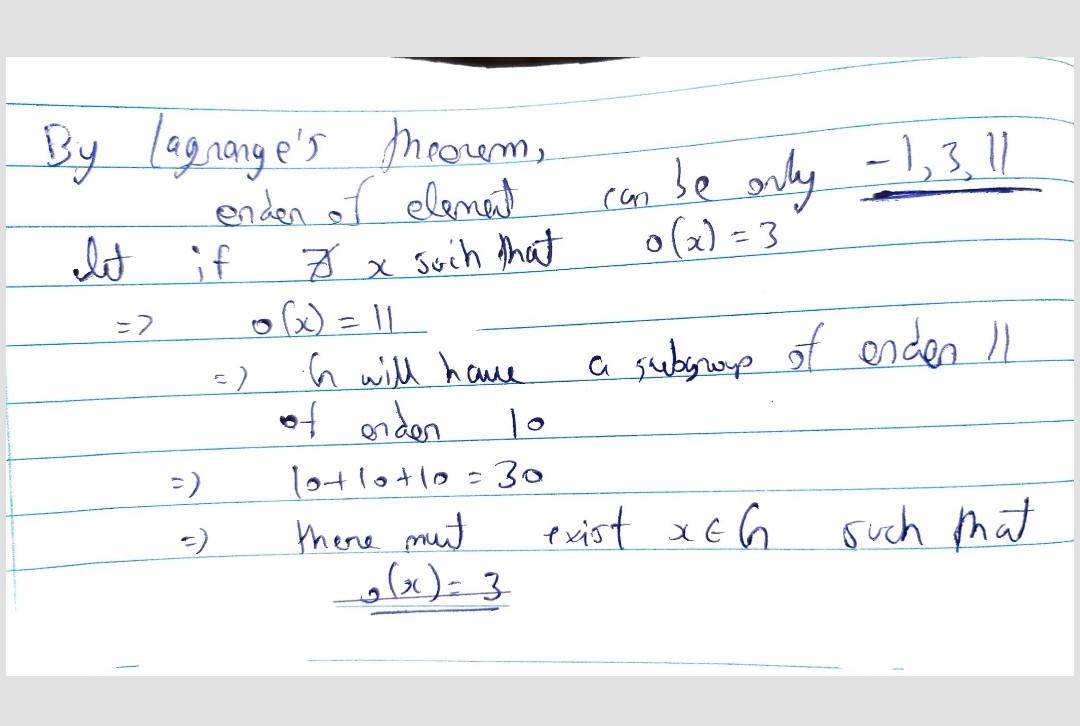 By Lagrange's theorem,
order of element can be only - 1, 3, 11
let if ∄ x such that o(x) = 3
=> o(x) = 11
=> G will have a subgroup of order 11
of order 10
=> 10+10+10 = 30
=> there must exist x ∈ G such that
o(x) = 3